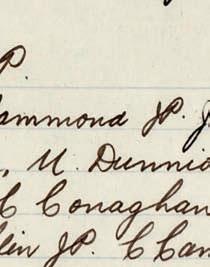 P.
ammond JP. J
, M. Dunni
C Conaghan
lin JP. C Can